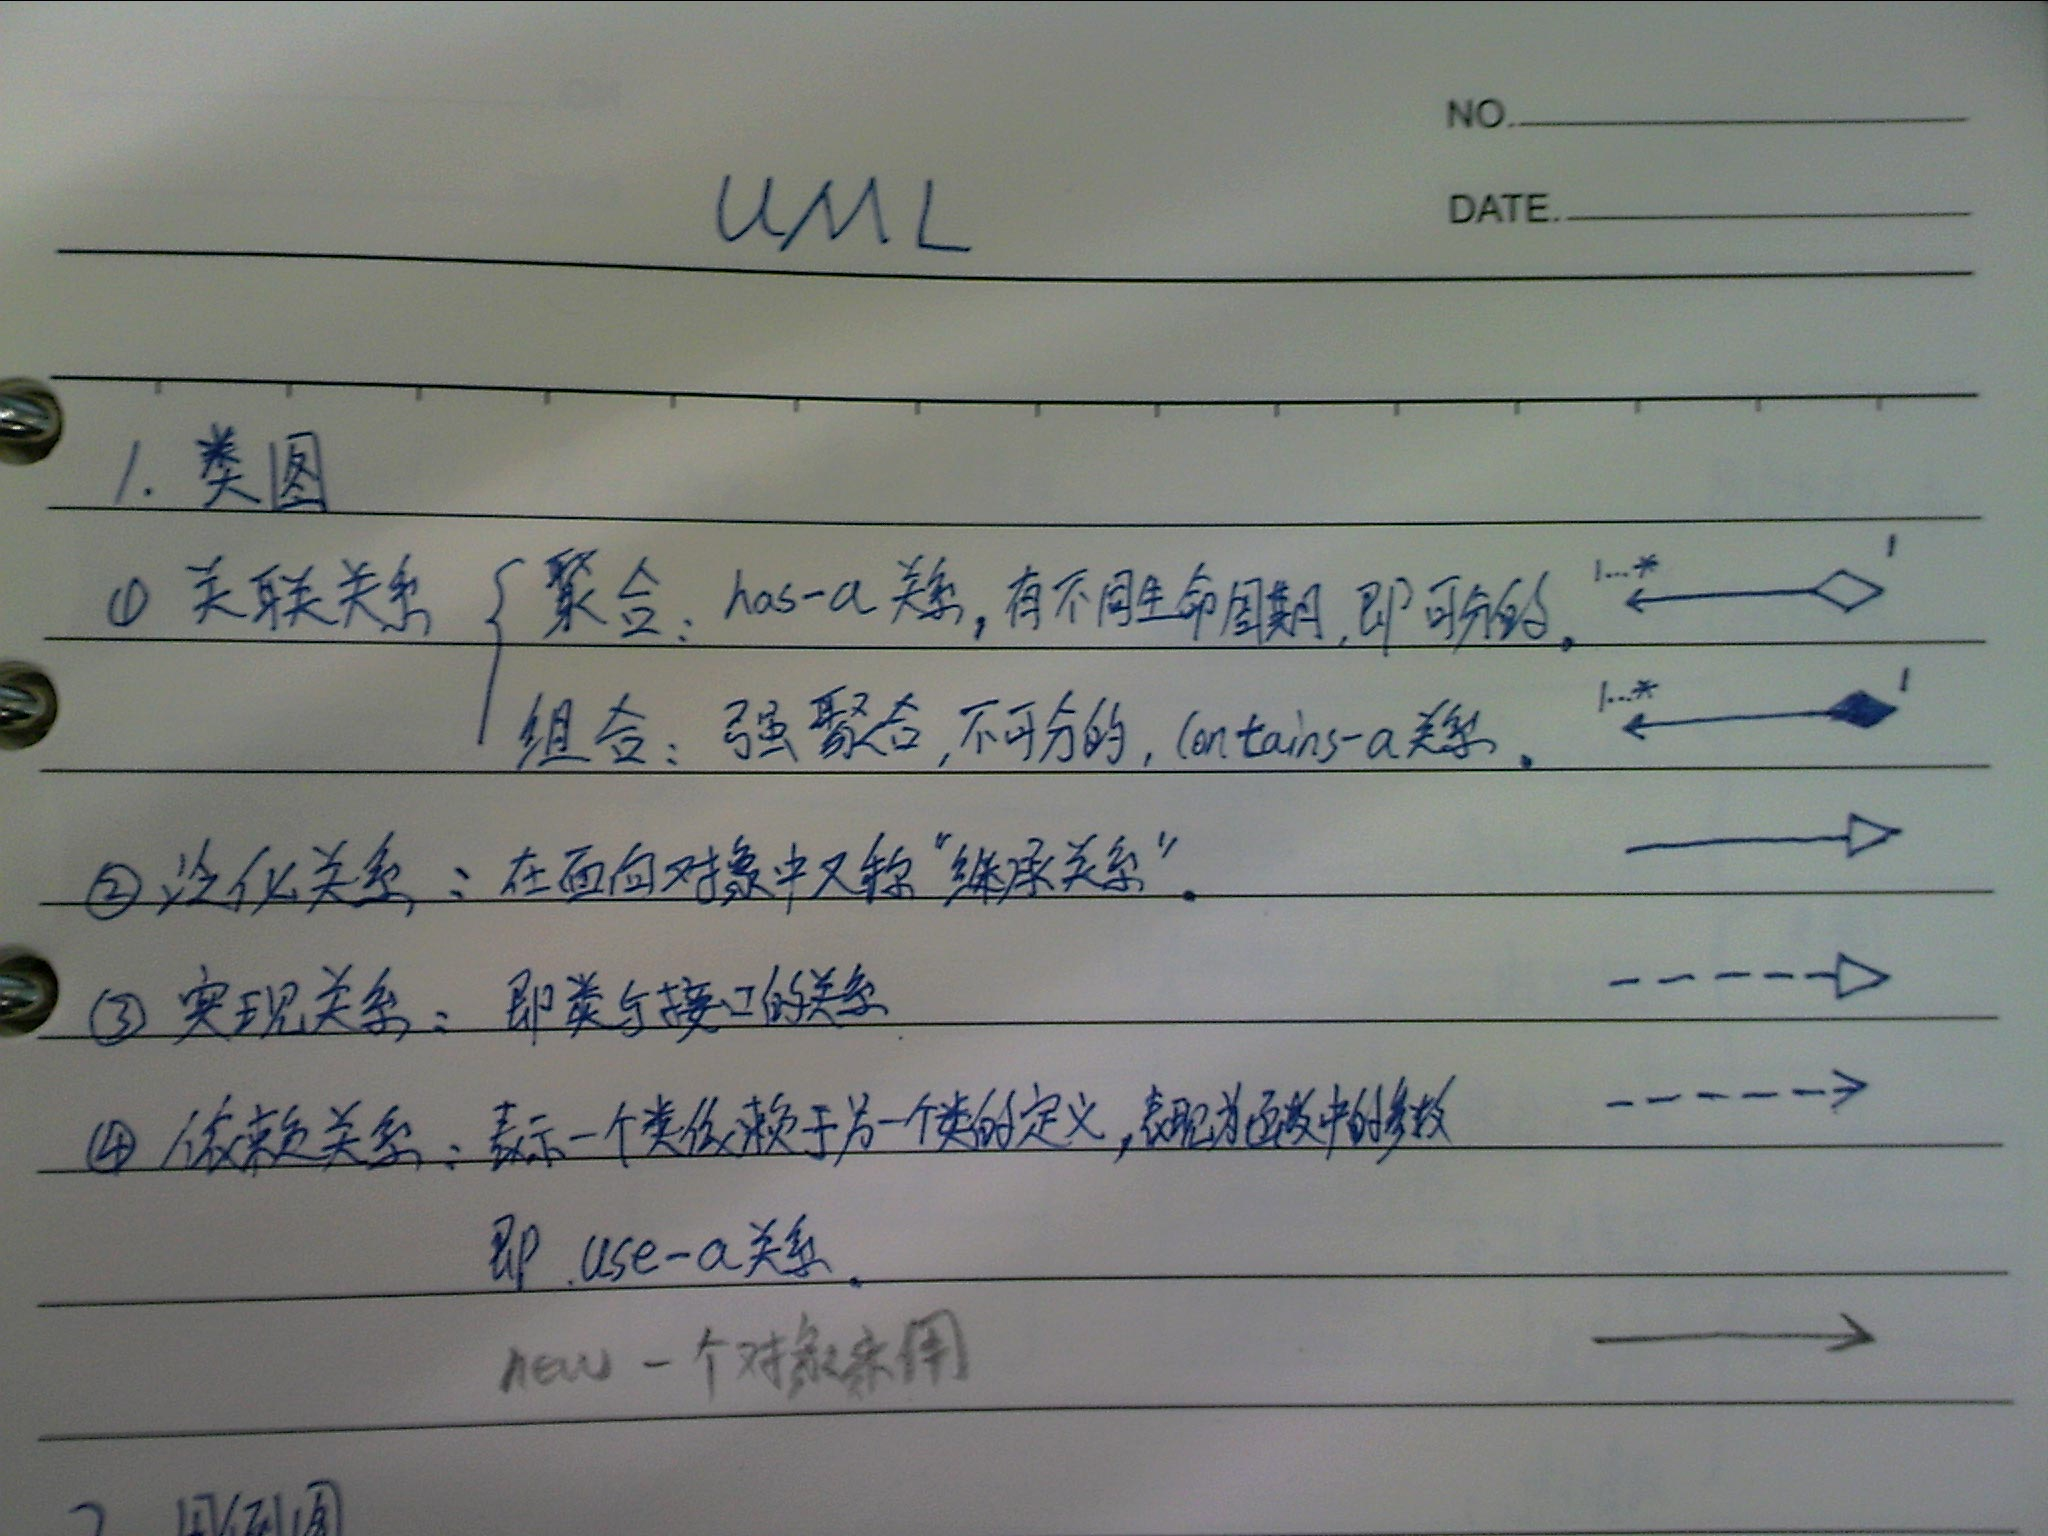 NO.
DATE.
UML
1. 类图
① 关联关系 { 聚合: has-a关系,有不同生命周期,即可分的. 1...* 1
组合: 强聚合,不可分的,contains-a关系. 1...* 1
② 泛化关系: 在面向对象中又称“继承关系”.
③ 实现关系: 即类与接口的关系
④ 依赖关系: 表示一个类依赖于另一个类的定义,表现为函数中的参数
即 use-a关系.
new 一个对象来用
2. 用例图